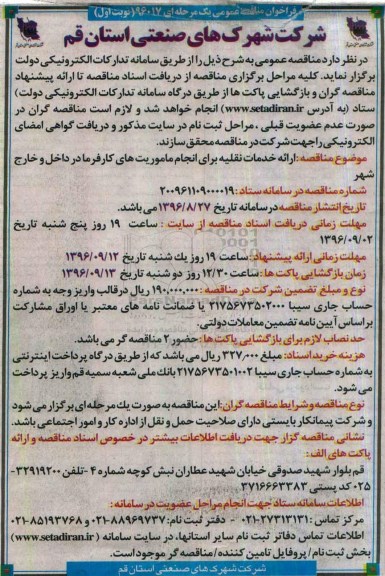 فراخوان مناقصه عمومی یک مرحله ای ۹۶۰۱۷ (نوبت اول)
شرکت شهرک های صنعتی استان قم
در نظر دارد مناقصه عمومی به شرح ذیل را از طریق سامانه تدارکات الکترونیکی دولت
برگزار نماید. کلیه مراحل برگزاری مناقصه از دریافت اسناد مناقصه تا ارائه پیشنهاد
مناقصه گران و بازگشایی پاکت ها از طریق درگاه سامانه تدارکات الکترونیکی دولت)
ستاد (به آدرس www.setadiran.ir) انجام خواهد شد و لازم است مناقصه گران در
صورت عدم عضویت قبلی ، مراحل ثبت نام در سایت مذکور و دریافت گواهی امضای
الکترونیکی را جهت شرکت در مناقصه محقق سازند.
موضوع مناقصه: ارائه خدمات نقلیه برای انجام ماموریت های کارفرما در داخل و خارج
شهر
شماره مناقصه در سامانه ستاد : ۲۰۰۹۶۱۱۰۹۰۰۰۰۱۹
تاریخ انتشار مناقصه در سامانه تاریخ ۱۳۹۶/۸/۲۷ می باشد.
مهلت زمانی دریافت اسناد مناقصه از سایت : ساعت ۱۹ روز پنج شنبه تاریخ
۱۳۹۶/۰۹/۰۲
مهلت زمانی ارائه پیشنهاد: ساعت ۱۹ روز یك شنبه تاریخ ۱۳۹۶/۰۹/۱۲
زمان بازگشایی پاکت ها : ساعت ۱۲/۳۰ روز دو شنبه تاریخ ۱۳۹۶/۰۹/۱۳
نوع و مبلغ تضمین شرکت در مناقصه : ۱۹۰,۰۰۰,۰۰۰ ریال در قالب واریز وجه به شماره
حساب جاری سیبا ۲۱۷۵۶۷۳۵۰۲۰۰۰ یا ضمانت نامه های معتبر یا اوراق مشارکت
بر اساس آیین نامه تضمین معاملات دولتی.
حد نصاب لازم برای بازگشایی پاکت ها : حضور ۲ مناقصه گر می باشد.
هزینه خرید اسناد: مبلغ ۳۲۷,۰۰۰ ریال می باشد که از طریق درگاه پرداخت اینترنتی
به شماره حساب جاری سیبا ۲۱۷۵۶۷۳۵۰۱۰۰۲ بانك ملی شعبه سمیه قم واریز پرداخت
می شود.
نوع مناقصه و شرایط مناقصه گران: این مناقصه به صورت یك مرحله ای برگزار می شود
و شرکت پیمانکار بایستی دارای صلاحیت حمل و نقل از اداره کار و امور اجتماعی باشد.
نشانی مناقصه گزار جهت دریافت اطلاعات بیشتر در خصوص اسناد مناقصه و ارائه
پاکت های الف:
قم بلوار شهید صدوقی خیابان شهید عطاران نبش کوچه شماره ۴ -تلفن ۳۲۹۱۹۲۰۰-
۰۲۵ کد پستی ۳۷۱۶۶۶۳۳۸۳
اطلاعات سامانه ستاد جهت انجام مراحل عضویت در سامانه :
مرکز تماس : ۲۷۳۱۳۱۳۱-۰۲۱ - دفتر ثبت نام : ۸۸۹۶۹۷۳۷-۰۲۱ و ۸۵۱۹۳۷۶۸-۰۲۱
اطلاعات تماس دفاتر ثبت نام سایر استانها، در سایت سامانه (www.setadiran.ir)
بخش ثبت نام / پروفایل تامین کننده / مناقصه گر موجود است.
شرکت شهرک های صنعتی استان قم